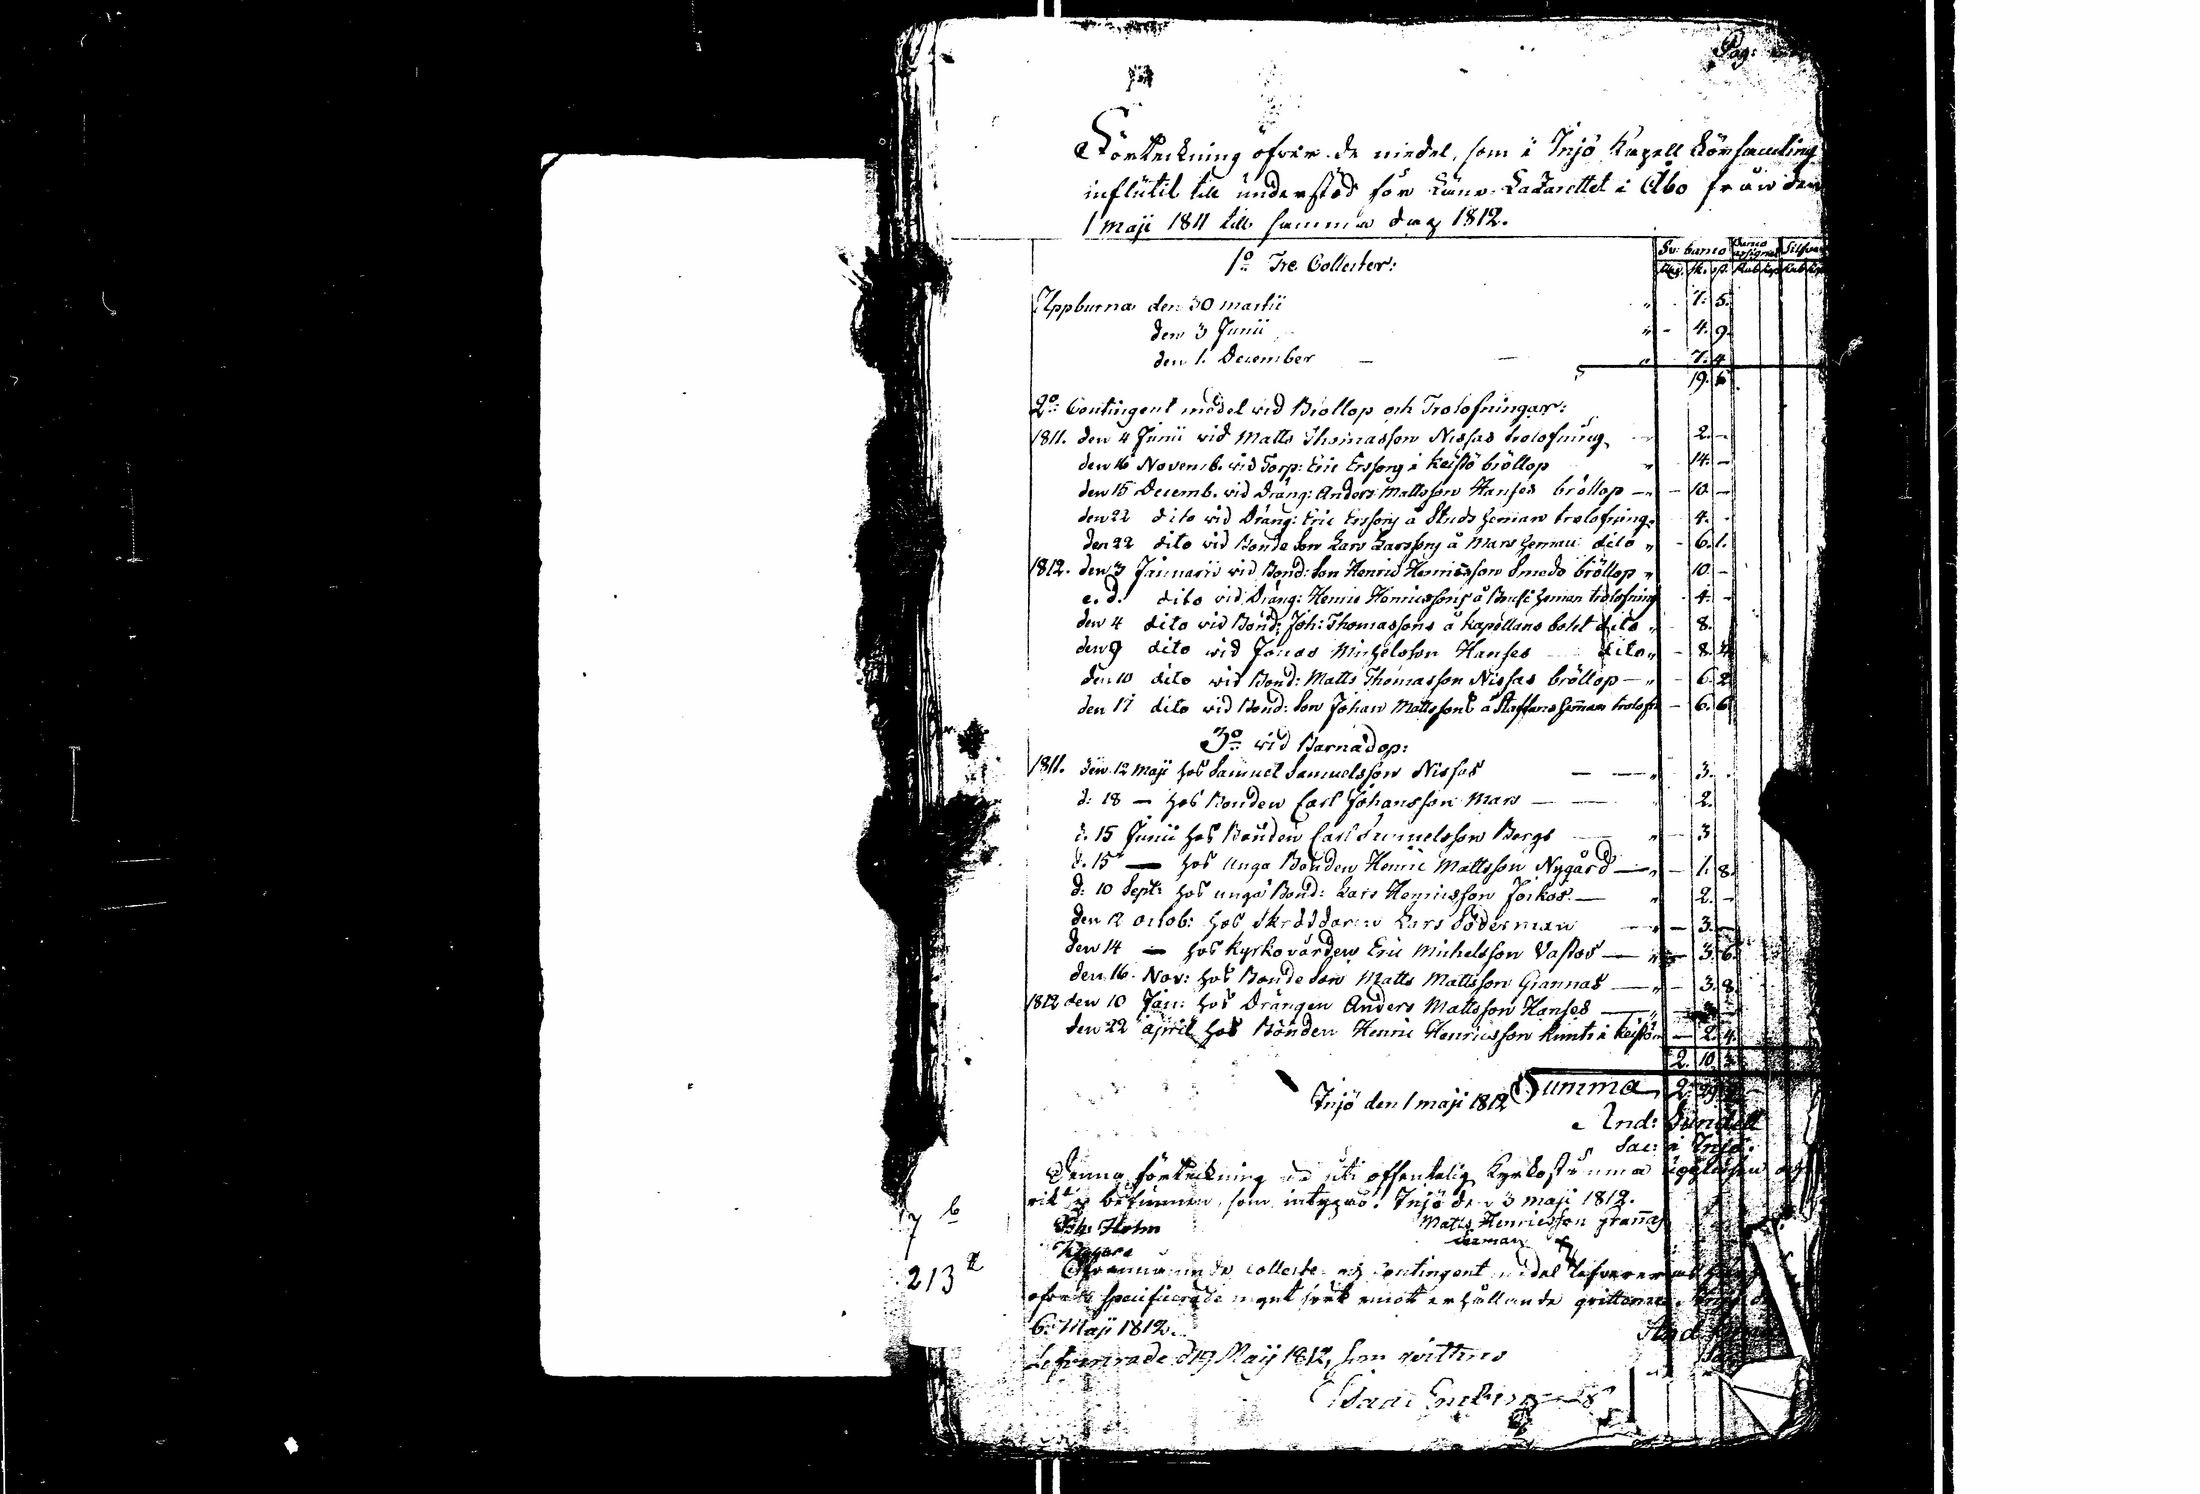 Pag:
Förteckning öfver de medel, som i Injö Kapell Församling
influtit till understöd för Läns Lazarettet i Åbo från den
1 maji 1811 till samma dag 1812.
Sv: banco Banco assignat Silfver
Rdg. sk. rst. Rub Kop Rub Kop
1o Tre Collecter:
Uppburna den 30 martii " - 7. 5.
den 3 Junii " - 4. 9.
den 1. December — — " 7. 4
19. 6.
2o Contingent medel vid Bröllop och Trolofningar:
1811. den 4 Junii vid Matts Thomasson Nissas trolofning 2. -
den 16 Novemb. vid Torp: Eric Erssons i Keistö bröllop " 14. -
den 15 Decemb. vid Dräng: Anders Mattsson Hanses bröllop — " - 10. -
den 22 dito vid Dräng: Eric Erssons å Studs heman trolofning " 4. -
den 22 dito vid Bonde Son Lars Larssons å Mars heman dito " - 6. 1.
1812. den 3 Januarii vid Bond: Son Henric Henricsson Smeds bröllop " 10. -
e. d. dito vid Dräng: Henric Henricssons å heman trolofning - 4. -
den 4 dito vid Bond: Joh: Thomassons å Kapellans bohl dito " 8.
den 9 dito vid Jonas Michelsson Hanses dito " - 8. 4
den 10 dito vid Bond: Matts Thomasson Nissas bröllop — " - 6. 2
den 17 dito vid Bond: Son Johan Mattssons å Staffans heman trolofn - 6. 6
3o vid Barnadop:
1811. den 12 Maji hos Samuel Samuelsson Nissas — — " 3. -
d: 18 — hos Bonden Carl Johansson Mars — — 2.
d. 15 Junii hos Bonden Carl Samuelsson Bergs — " - 3
d. 15 — hos unga Bonden Henric Mattsson Nygård — " - 1. 8.
d: 10 Sept: hos unga Bond: Lars Henricsson Joikas — " 2. -
den 12 octob: hos Skräddaren Lars Söderman — " - 3. -
den 14 — hos Kyrkovärden Eric Michelsson Vastas — " - 3. 6.
den 16 Nov: hos Bonde Son Matts Mattsson Grannas — " - 3. 8.
1812 den 10 Jan: hos Drängen Anders Mattsson Hanses — "
den 22 April hos Bonden Henric Henricsson Kunts i Keistö " — 2. 4.
2. 10. 3
Summa 2. 29.
Injö den 1 maji 1812
And: Sundell
Sac: i Injö.
Denna förteckning är uti offentelig Kyrkostämma upläsen och
riktig befunnen, som intygas. Injö den 3 maji 1812.
Holm Matts Henricsson grannas
Klockare
7 b
213 a
collecte och Contingent medel
specificerade mynt sort emot erhållande qvittence
6. Maji 1812.
And
Lefvererade d 19 Maij 1812, som qvitteras
Isaac